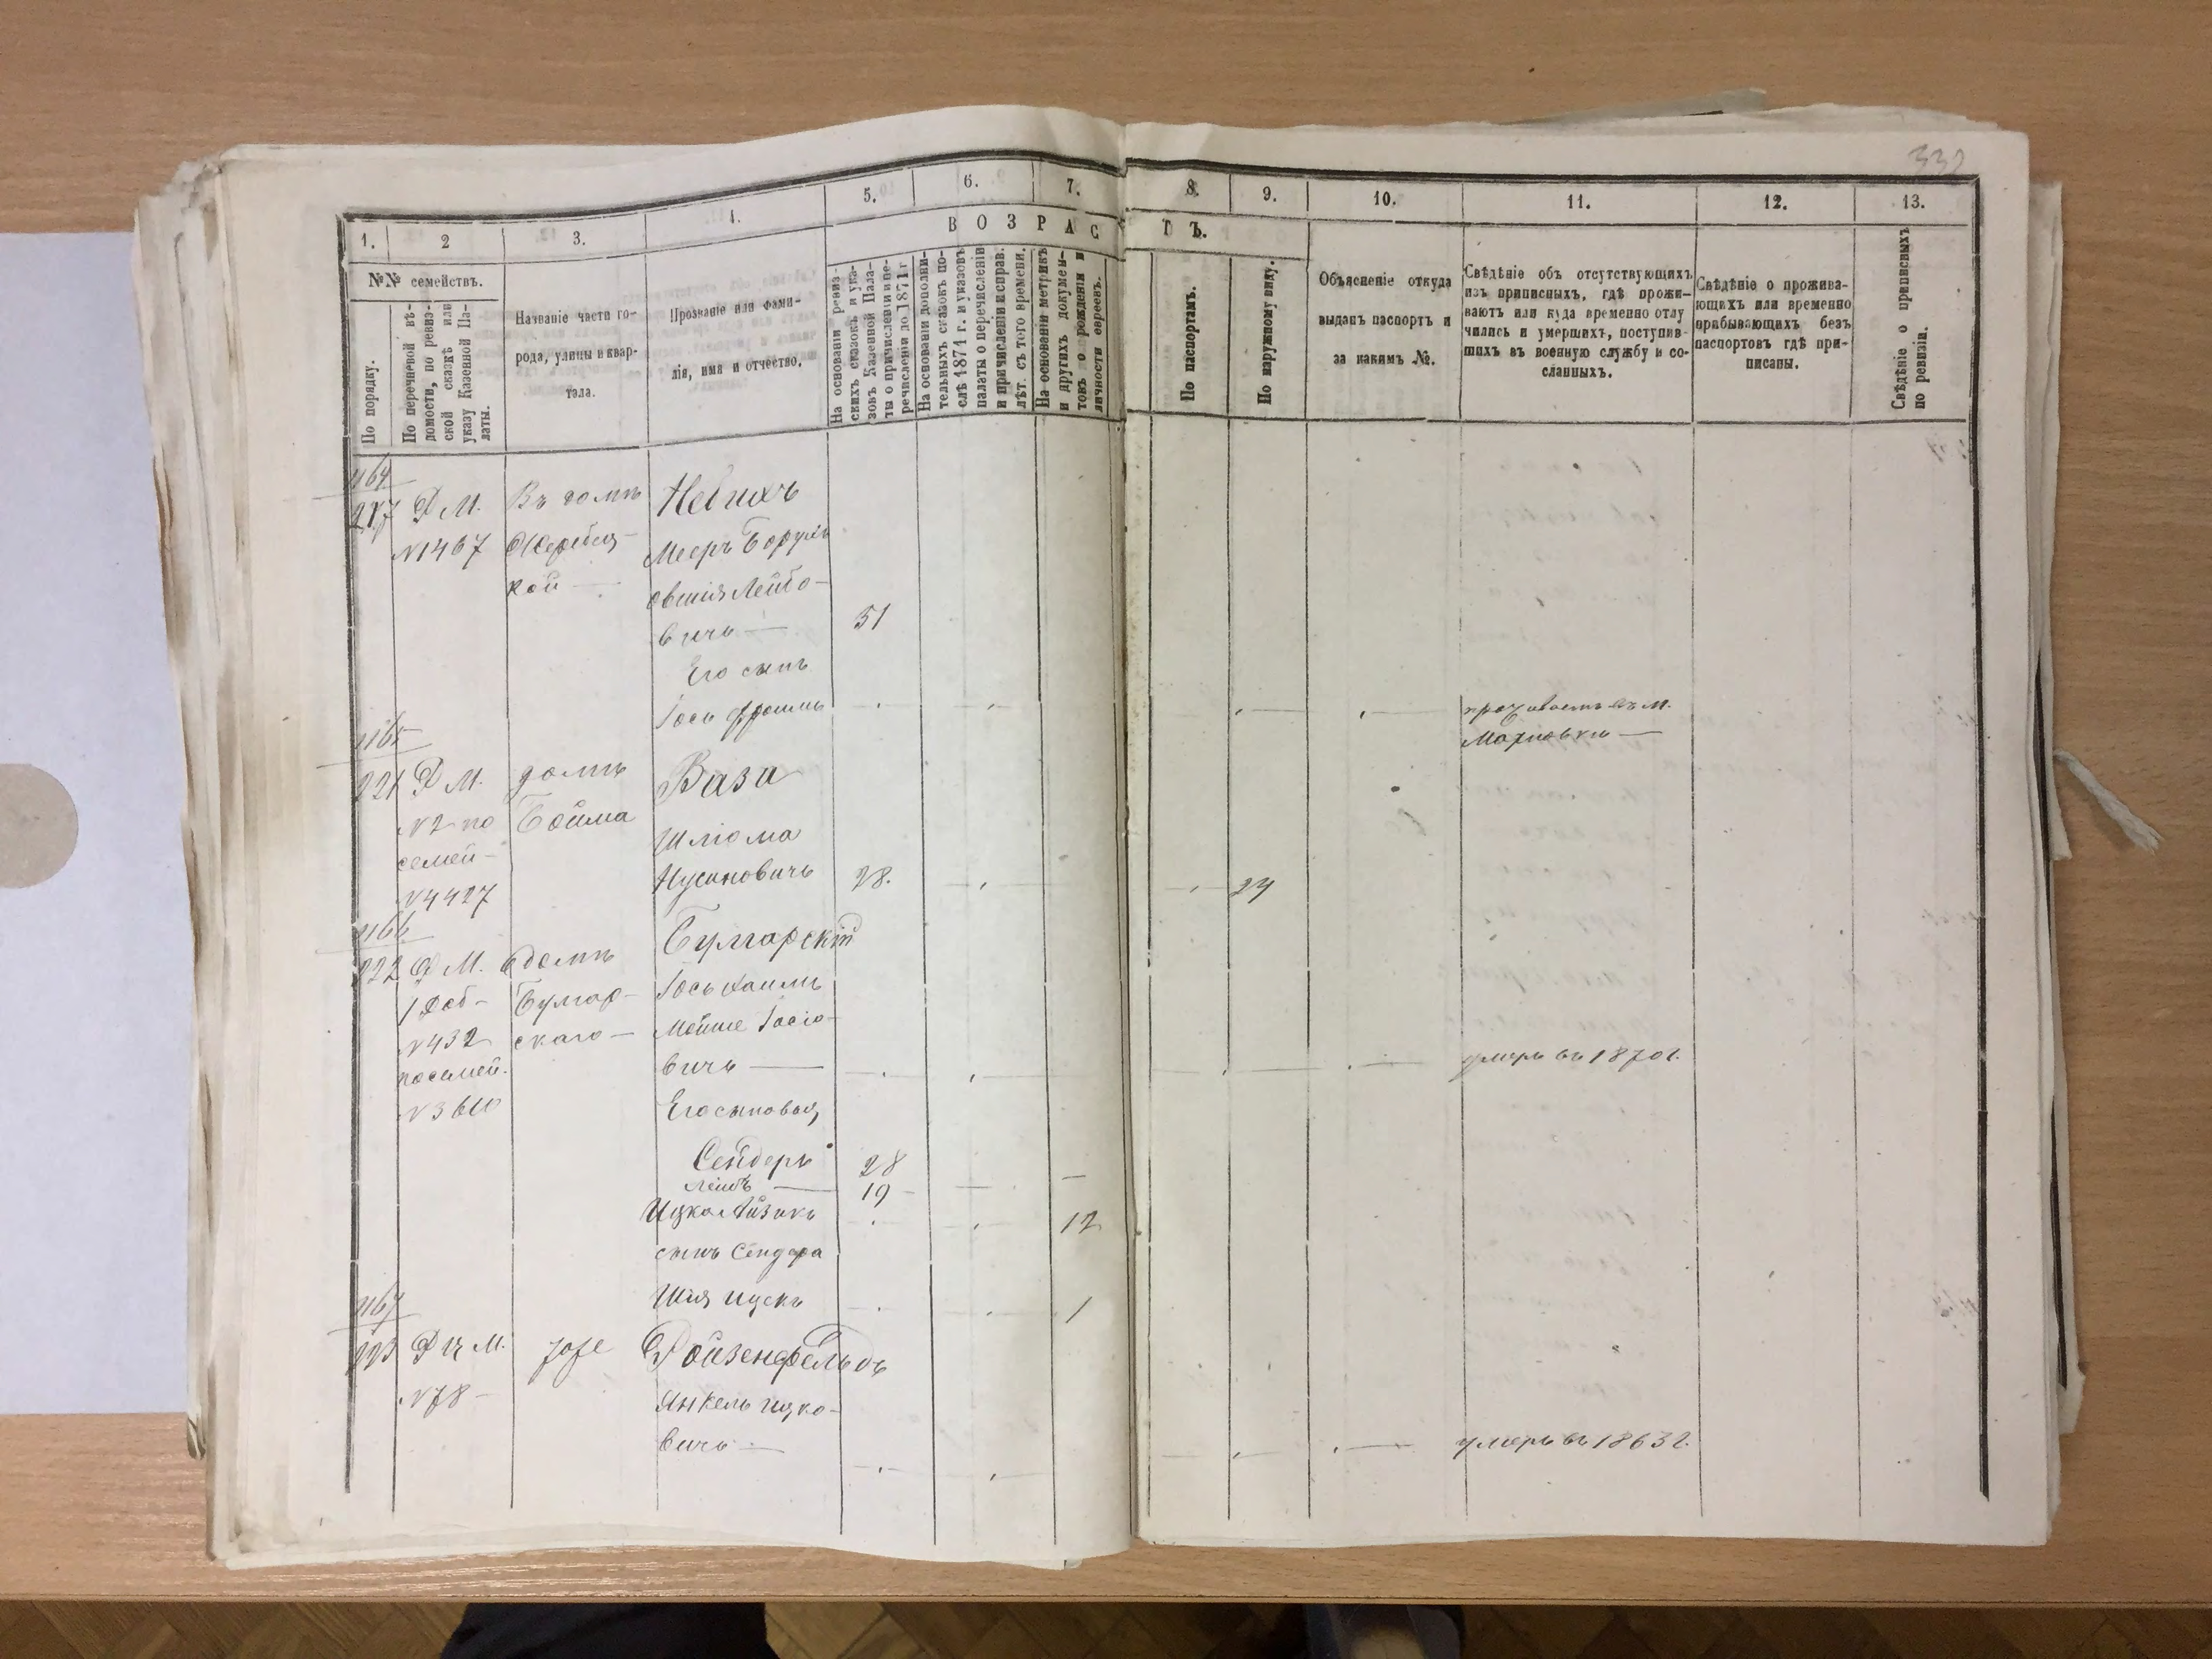 332
1.
2
3.
4.
5.
6.
7.
8.
9.
10.
11.
12.
13.
ВОЗРАСТЪ.
№№ семействъ.
По порядку.
По перечневой вѣ-
домости, по ревиз-
ской сказкѣ или
указу Казенной Па-
латы.
Названіе части го-
рода, улицы и квар-
тала.
Прозваніе или фами-
лія, имя и отчество.
На основаніи ревиз-
скихъ сказокъ и ука-
зовъ Казенной Пала-
ты о причисленіи и пе-
речисленіи до 1871 г
На основаніи дополни-
тельныхъ сказокъ по-
слѣ 1871 г. и указовъ
палаты о перечисленіи
и причисленіи и справ.
лѣт. съ того времени.
На основаніи метрикъ
и другихъ докумен-
товъ о рожденіи и
личности евреевъ.
По паспортамъ.
По наружному виду.
Объясненіе откуда
выданъ паспортъ и
за какимъ №.
Свѣдѣніе объ отсутствующихъ
изъ приписныхъ, гдѣ прожи-
ваютъ или куда временно отлу
чились и умершихъ, поступив-
шихъ въ военную службу и со-
сланныхъ.
Свѣдѣніе о прожива-
ющихъ или временно
прибывающихъ безъ
паспортовъ гдѣ при-
писаны.
Свѣдѣніе о приписныхъ
по ревизіи.
1164
Д М. Въ домѣ
№1467
кой —
Мееръ Борухъ
Лейбо-
вичъ — 51
Его сынъ
Іось Фроимъ
проживаетъ въ м.
1165
221 Д М. домъ Ваза
№2 по Бойма
семей-
№4427
Шлiома
Нусиновичъ 28. 24
1166
222 Д М. домъ Булгарскій
1 Доб- Булгар- Іось Хаимъ
№432 скаго — Мойше Іосіо-
посемей. вичъ — умеръ въ 1870 г.
Его сыновья,
Сендеръ 28
Лейбъ — 19
Ицко Айзикъ 12
сынъ Сендера
Шія Ицекъ 1
1167
223 Д М. Ройзенфельдъ
№78 —
Янкель Ицко-
вичъ — умеръ въ 1863 г.